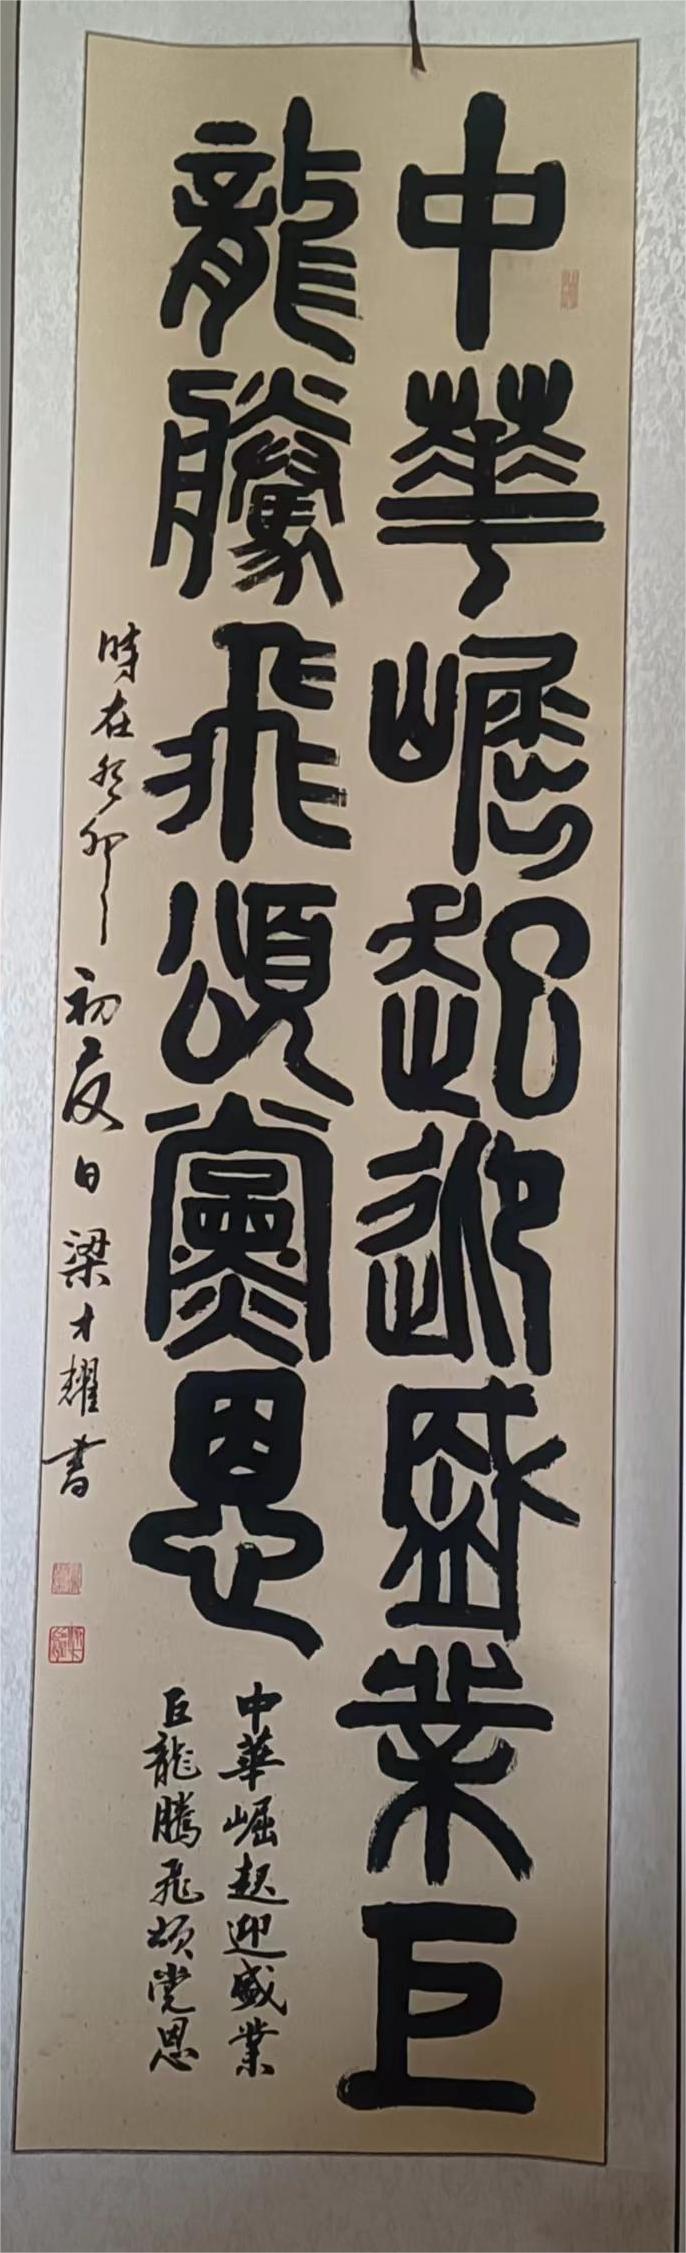 中華崛起迎盛業巨
龍騰飛頌黨恩
中華崛起迎盛業
巨龍騰飛頌党恩
時在癸卯初夏日梁才耀書